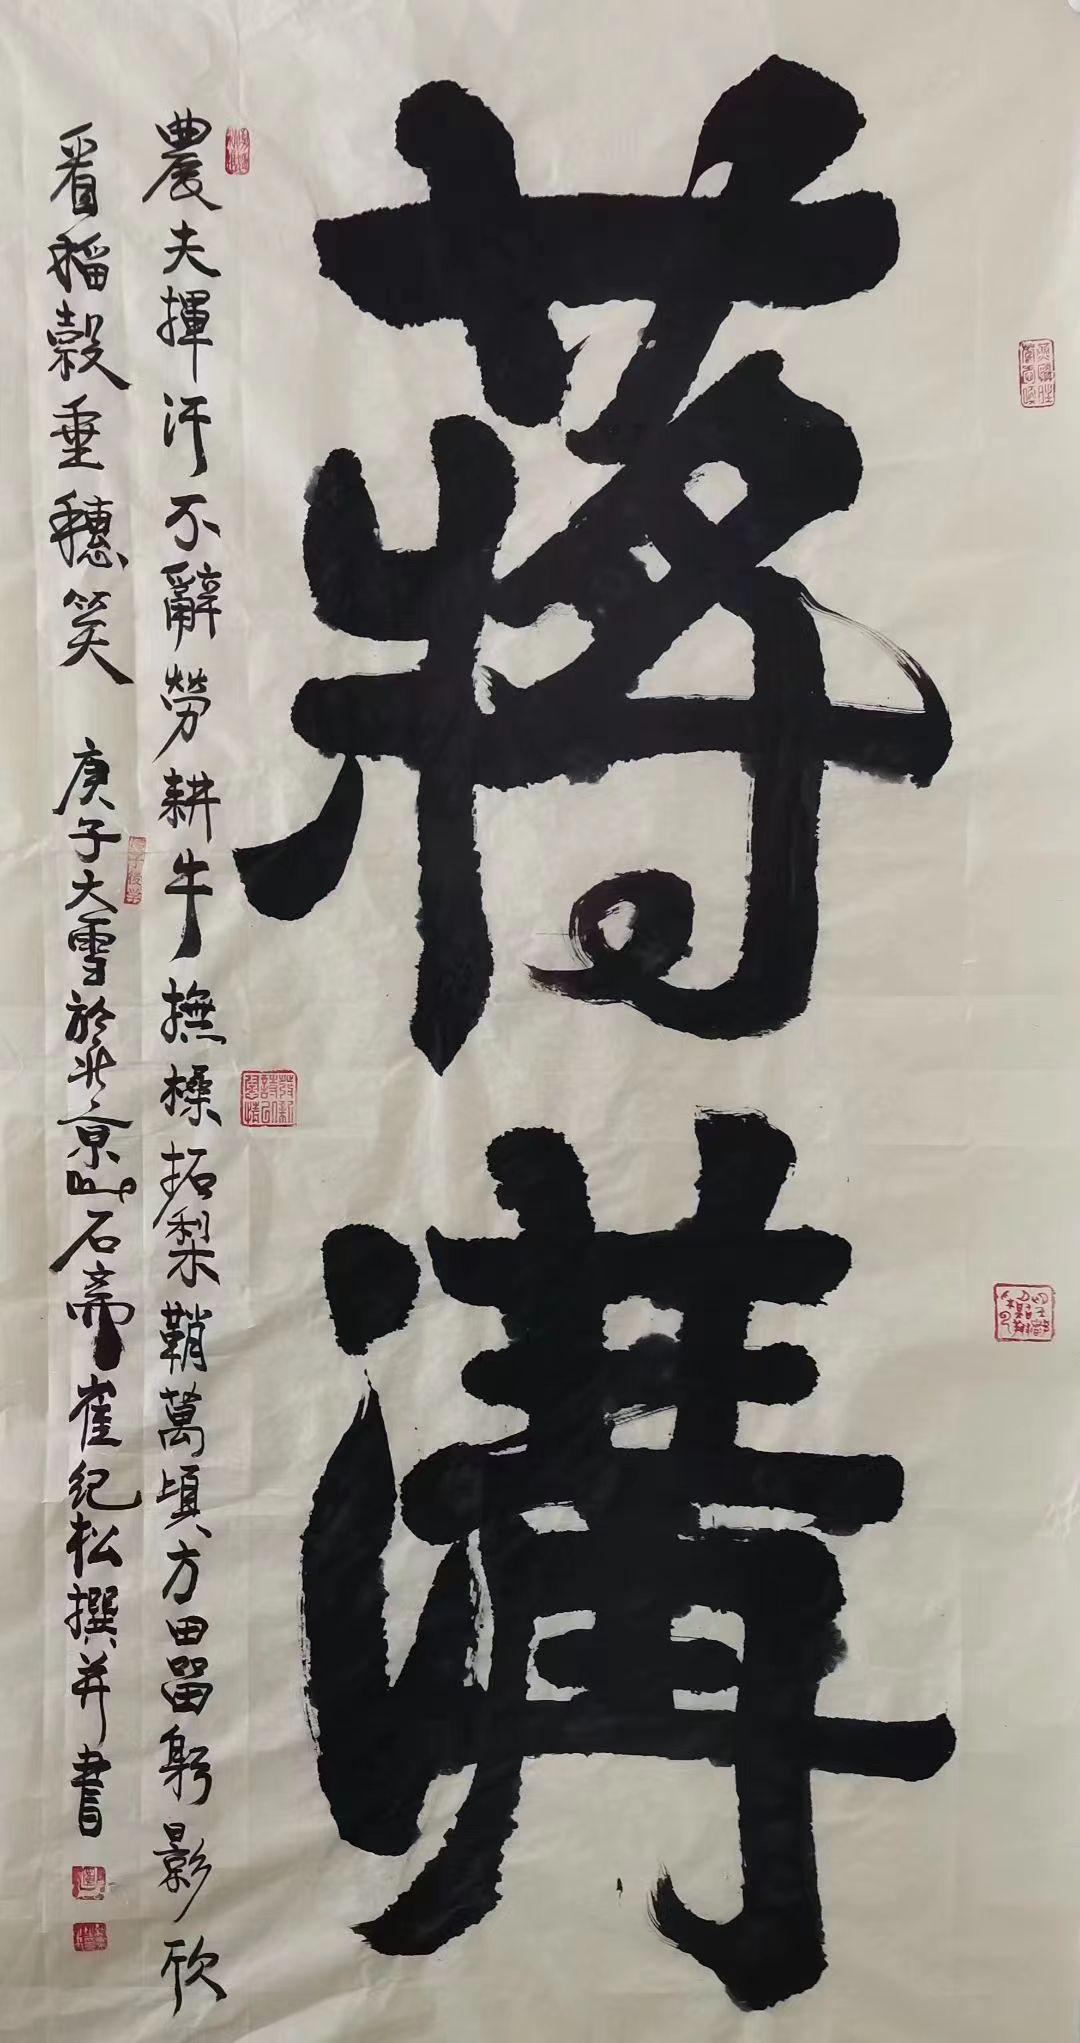 蔣溝
農夫揮汗不辭勞耕牛撫橾拓犁鞘萬頃方田留躬影欣
看稻穀垂穗笑 庚子大雪於北京山石齋崔纪松撰并書